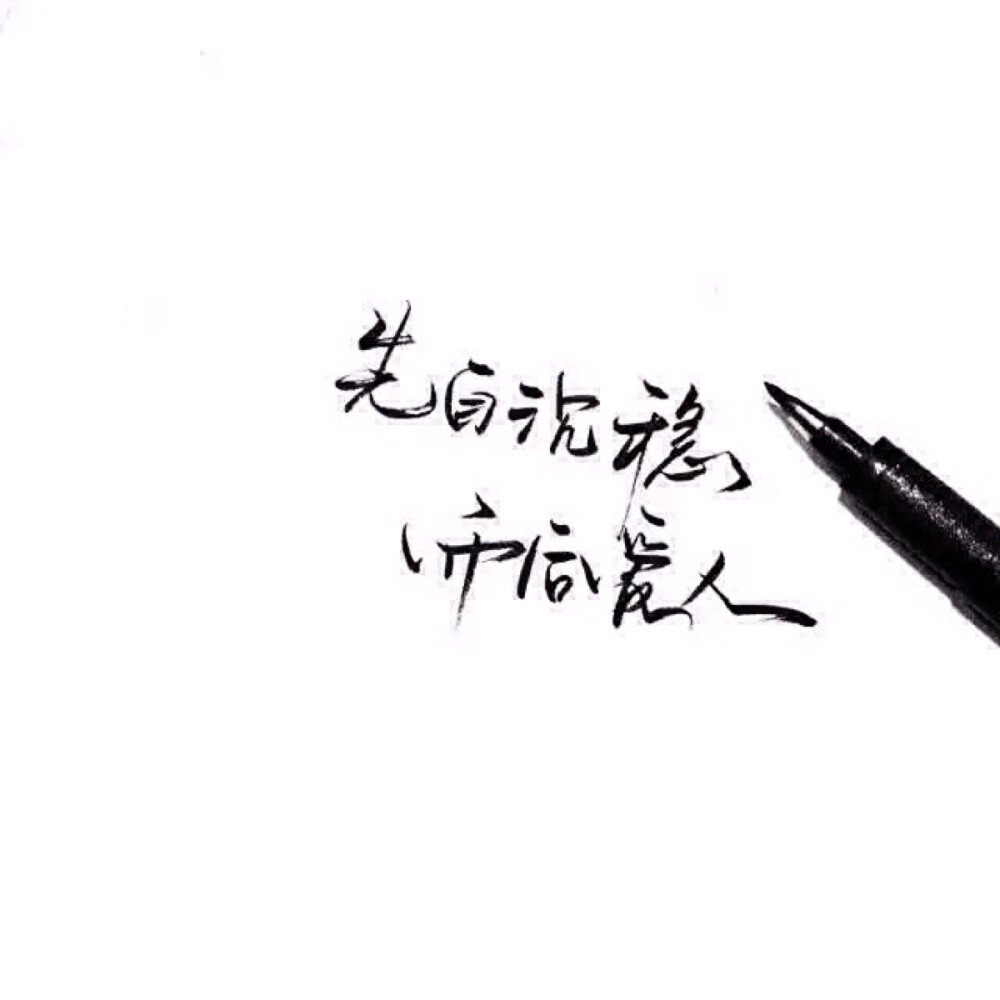 先自沉稳
而后爱人